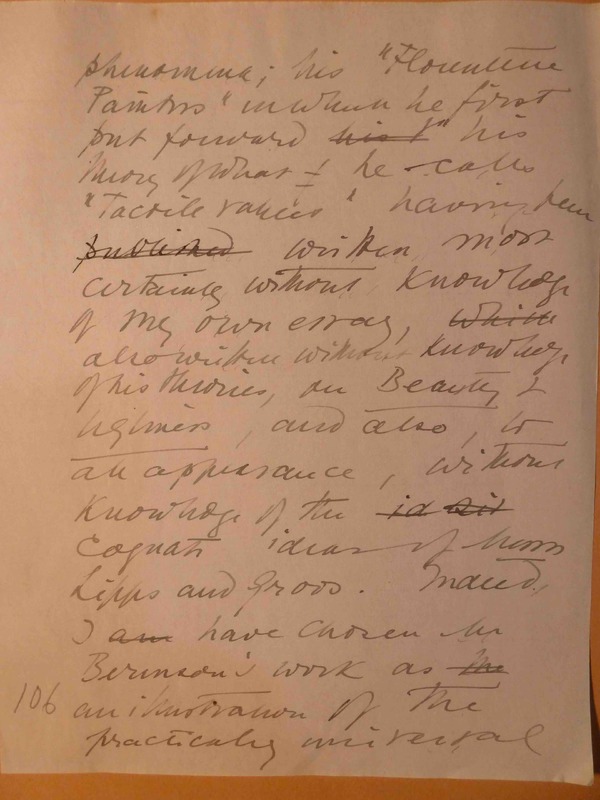 phenomena; his "Florentine
Painters" in which he first
put forward his t" his
theory of what I he calls
"Tactile values" having been
published written most
certainly without knowledge
of my own essay, which
also written without knowledge
of his theories, on Beauty &
Ugliness, and also, to
all appearance, without
knowledge of the id
Cognate ideas of Messrs
Lipps and Groos. Indeed,
I am have chosen Mr
Berenson's work as the
106 an illustration of the
practically universal